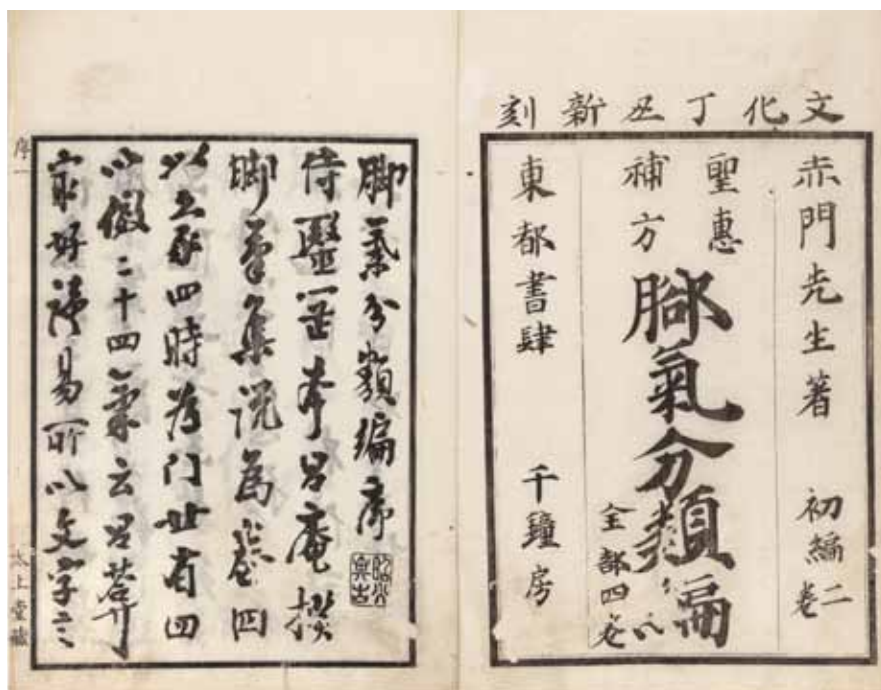 文化丁丑新刻
赤門先生著 初編二卷
聖惠
補方
腳氣分類編
全部四卷
東都書肆 千鐘房
脚氣分類編序
侍醫呂庵撰
脚氣集説為卷四
以四時為门廿有四
以倣二十四氣云呂菴
好讀易所以文字之
序一
太上堂藏